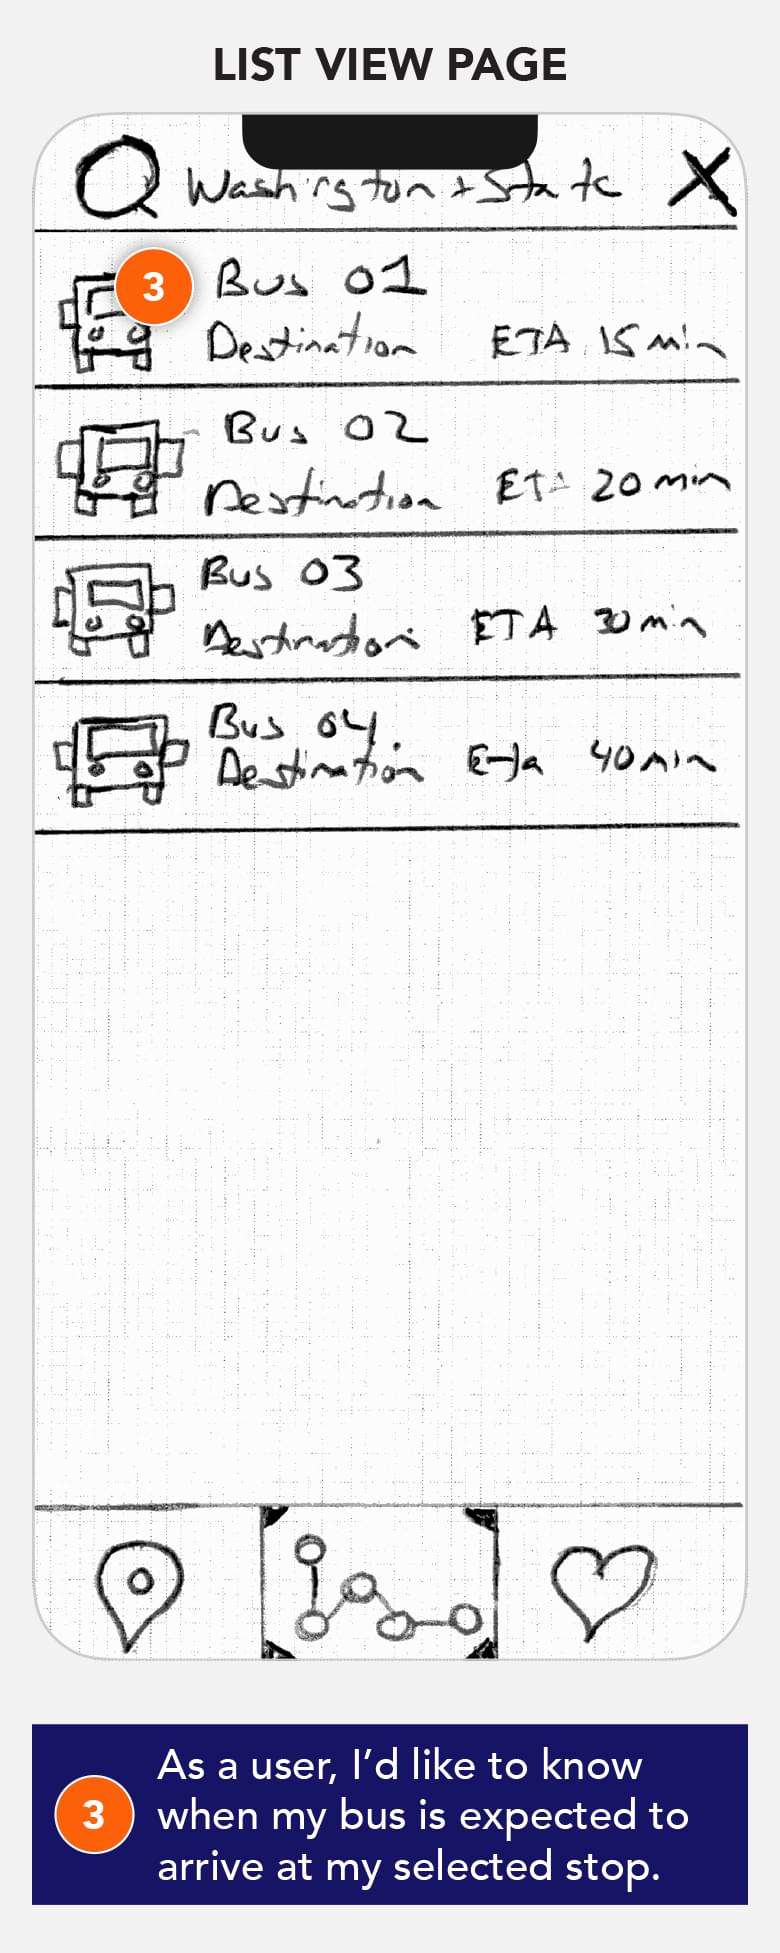 LIST VIEW PAGE
Washington + State
3
Bus 01
Destination ETA 15 min
Bus 02
Destination ETA 20 min
Bus 03
Destination ETA 30 min
Bus 04
Destination Eta 40 min
3
As a user, I'd like to know
when my bus is expected to
arrive at my selected stop.